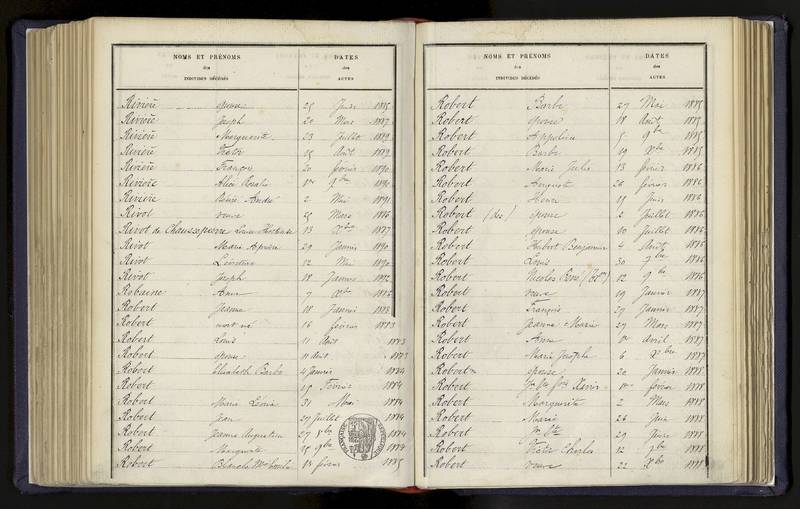 NOMS ET PRÉNOMS DATES
des des
INDIVIDUS DÉCÉDÉS ACTES
Rivière épouse 25 Juin 1885
Rivière Joseph 20 Mars 1887
Rivière Marguerite 23 Juillet 1889
Rivière Victor 15 Août 1889
Rivière François 20 février 1890
Rivière Alice 1er 1890
Rivière André 2 Mai 1891
Rivot veuve 25 Mars 1886
Rivot de Chausseperre Louise 13 Xbre 1887
Rivot Marie 29 Janvier 1890
Rivot Léontine 12 Mai 1890
Rivot Joseph 18 Janvier 1892
Robaine Anne 7 Xbre
Robert Jeanne 18 Janvier 1883
Robert mort né 16 février 1883
Robert Louis 11 Août 1883
Robert épouse 11 Août 1883
Robert Elisabeth Barbe 4 Janvier 1884
Robert 15 Février 1884
Robert Marie Léonie 31 Mai 1884
Robert Jean 27 Juillet 1884
Robert Jeanne Augustine 27 1884
Robert Marguerite 25 9bre 1884
Robert Blanche 13 février 1885
NOMS ET PRÉNOMS DATES
des des
INDIVIDUS DÉCÉDÉS ACTES
Robert Barbe 27 Mai 1885
Robert épouse 18 Août 1885
Robert Appoline 5 9bre 1885
Robert Barbe 19 Xbre 1885
Robert Marie Julie 13 février 1886
Robert Auguste 26 février 1886
Robert Henri 15 Juin 1886
Robert (dee) épouse 2 Juillet 1886
Robert épouse 10 Juillet 1886
Robert Hubert Benjamin 4 Août 1886
Robert Louis 30 7bre 1886
Robert Nicolas René 12 9bre 1886
Robert veuve 19 Janvier 1887
Robert François 27 Janvier 1887
Robert Jeanne Marie 27 Mars 1887
Robert Anne 1er avril 1887
Robert Marie Joseph 6 Xbre 1887
Robert épouse 20 Janvier 1888
Robert 1er février 1888
Robert Marguerite 2 Mars 1888
Robert Marie 26 Juin 1888
Robert 29 Juin 1888
Robert Victor Charles 12 1888
Robert veuve 22 Xbre 1888